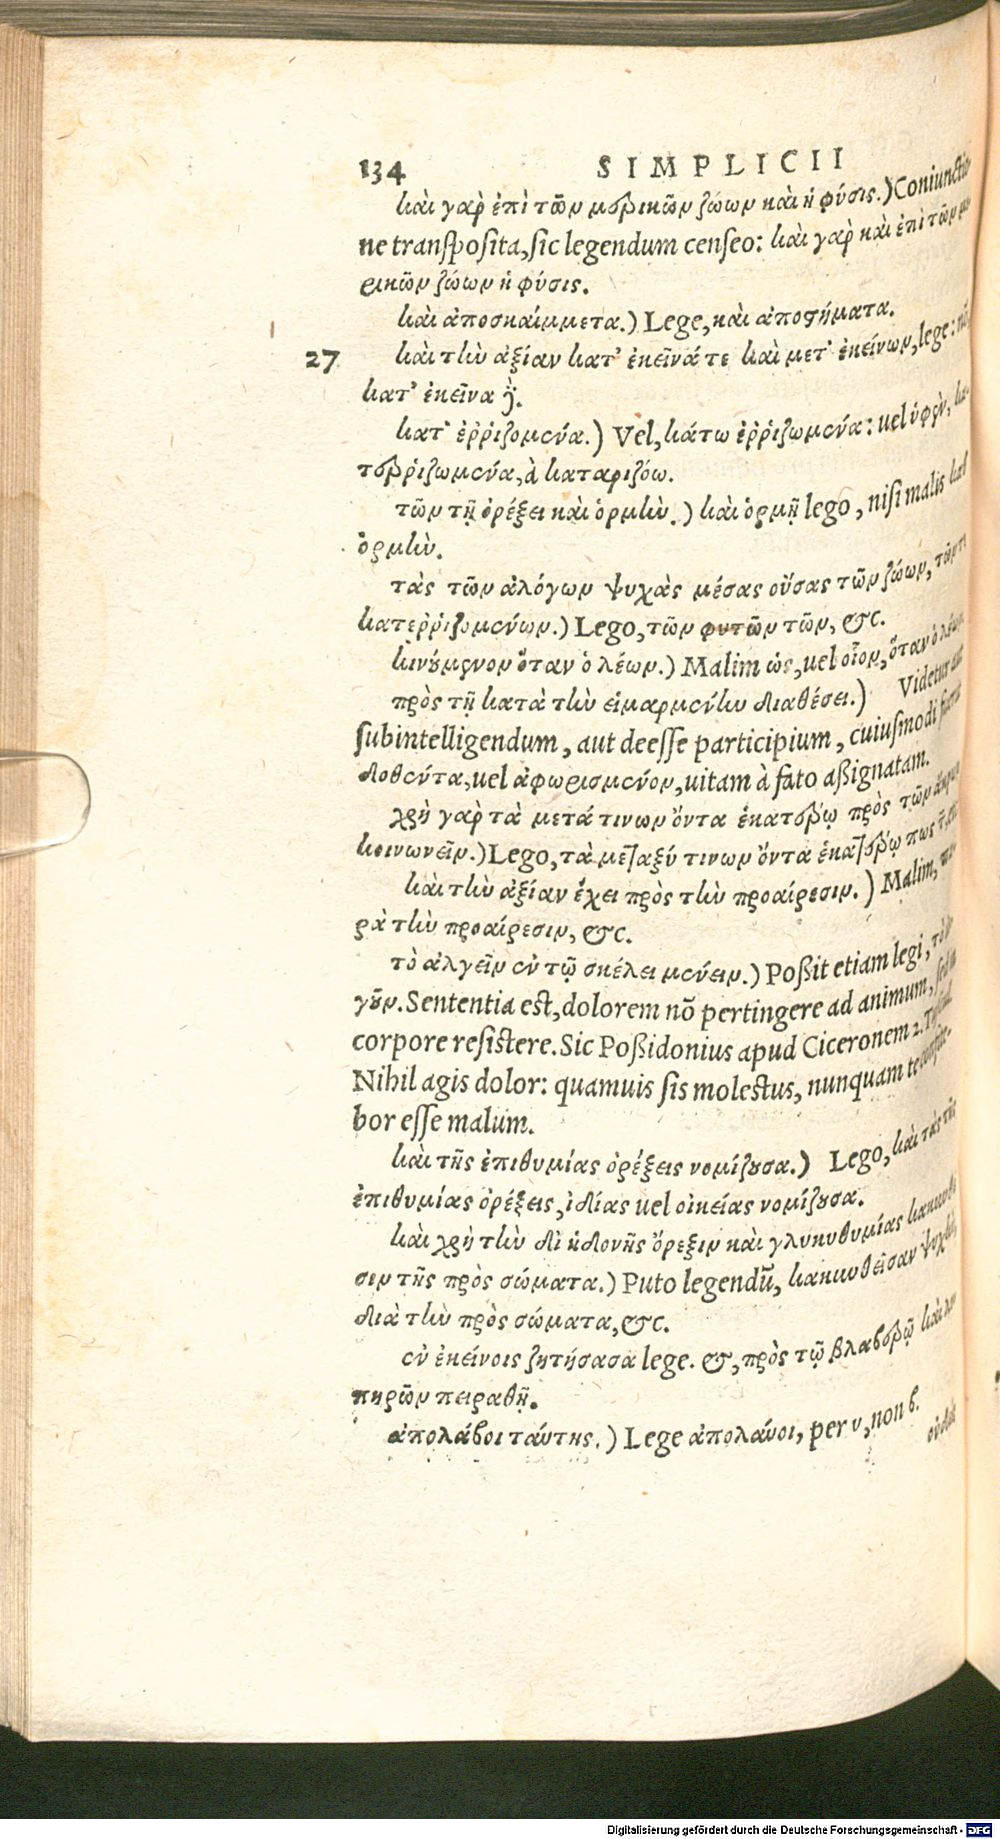 134 SIMPLICII
καὶ γαρ ἐπὶ τῶν μερικῶν ζώων καὶ ἡ φύσις.) Coniunctio
ne transposita, sic legendum censeo: καὶ γαρ καὶ ἐπὶ τῶν με
ρικῶν ζώων ἡ φύσις.
καὶ ἀποσκαίμματα.) Lege, καὶ ἀποστήματα.
27 καὶ τὴν ἀξίαν κατ' ἐκεῖνά τε καὶ μετ' ἐκείνων, lege:
κατ' ἐκεῖνα
κατ' ἐῤῥιζομένα.) Vel, κάτω ἐῤῥιζωμένα: uel ὑφὲν, κα-
τεῤῥιζωμένα, à καταριζόω.
τῶν τῇ ὀρέξει καὶ ὁρμὴν.) καὶ ὁρμῇ lego, nisi malis καθ
ὁρμὴν.
τὰς τῶν ἀλόγων ψυχὰς μέσας οὔσας τῶν ζώων, τῶν τε
κατεῤῥιζομένων.) Lego, τῶν φυτῶν τῶν, &c.
κινούμενον ὅταν ὁ λέων.) Malim ὡς, uel οἷον, ὅταν ὁ λέων.
πρὸς τῇ κατὰ τὴν εἱμαρμένην διαθέσει.) Videtur aut
subintelligendum, aut deesse participium, cuiusmodi fuerit
δοθέντα, uel ἀφωρισμένον, uitam à fato aßignatam.
χρὴ γαρ τὰ μετά τινων ὄντα ἑκατέρῳ πρὸς τῶν ἄκρων
κοινωνεῖν.) Lego, τὰ μεταξύ τινων ὄντα ἑκατέρῳ πως
καὶ τὴν ἀξίαν ἔχει πρὸς τὴν προαίρεσιν.) Malim, πα
ρὰ τὴν προαίρεσιν, &c.
τὸ ἀλγεῖν ἐν τῷ σκέλει μένειν.) Poßit etiam legi,
γοῦν. Sententia est, dolorem nõ pertingere ad animum, sed in
corpore resistere. Sic Poßidonius apud Ciceronem 2. Tuscul.
Nihil agis dolor: quamuis sis molestus, nunquam te confite-
bor esse malum.
καὶ τῆς ἐπιθυμίας ὀρέξεις νομίζουσα.) Lego, καὶ τὰς τῆς
ἐπιθυμίας ὀρέξεις, ἰδίας uel οἰκείας νομίζουσα.
καὶ χρὴ τὴν δι ἡδονῆς ὄρεξιν καὶ γλυκυθυμίας κακυνθεῖ
σιν τῆς πρὸς σώματα.) Puto legendũ, κακυνθεῖσαν ψυχὴν,
διὰ τὴν πρὸς σώματα, &c.
ἐν ἐκείνοις ζητήσασα lege. &, πρὸς τῷ βλαβερῷ καὶ λυ
πηρῶν πειραθῇ.
ἀπολάβοι ταύτης.) Lege ἀπολαύοι, per υ, non β.
οὐδὲ
Digitalisierung gefördert durch die Deutsche Forschungsgemeinschaft - DFG